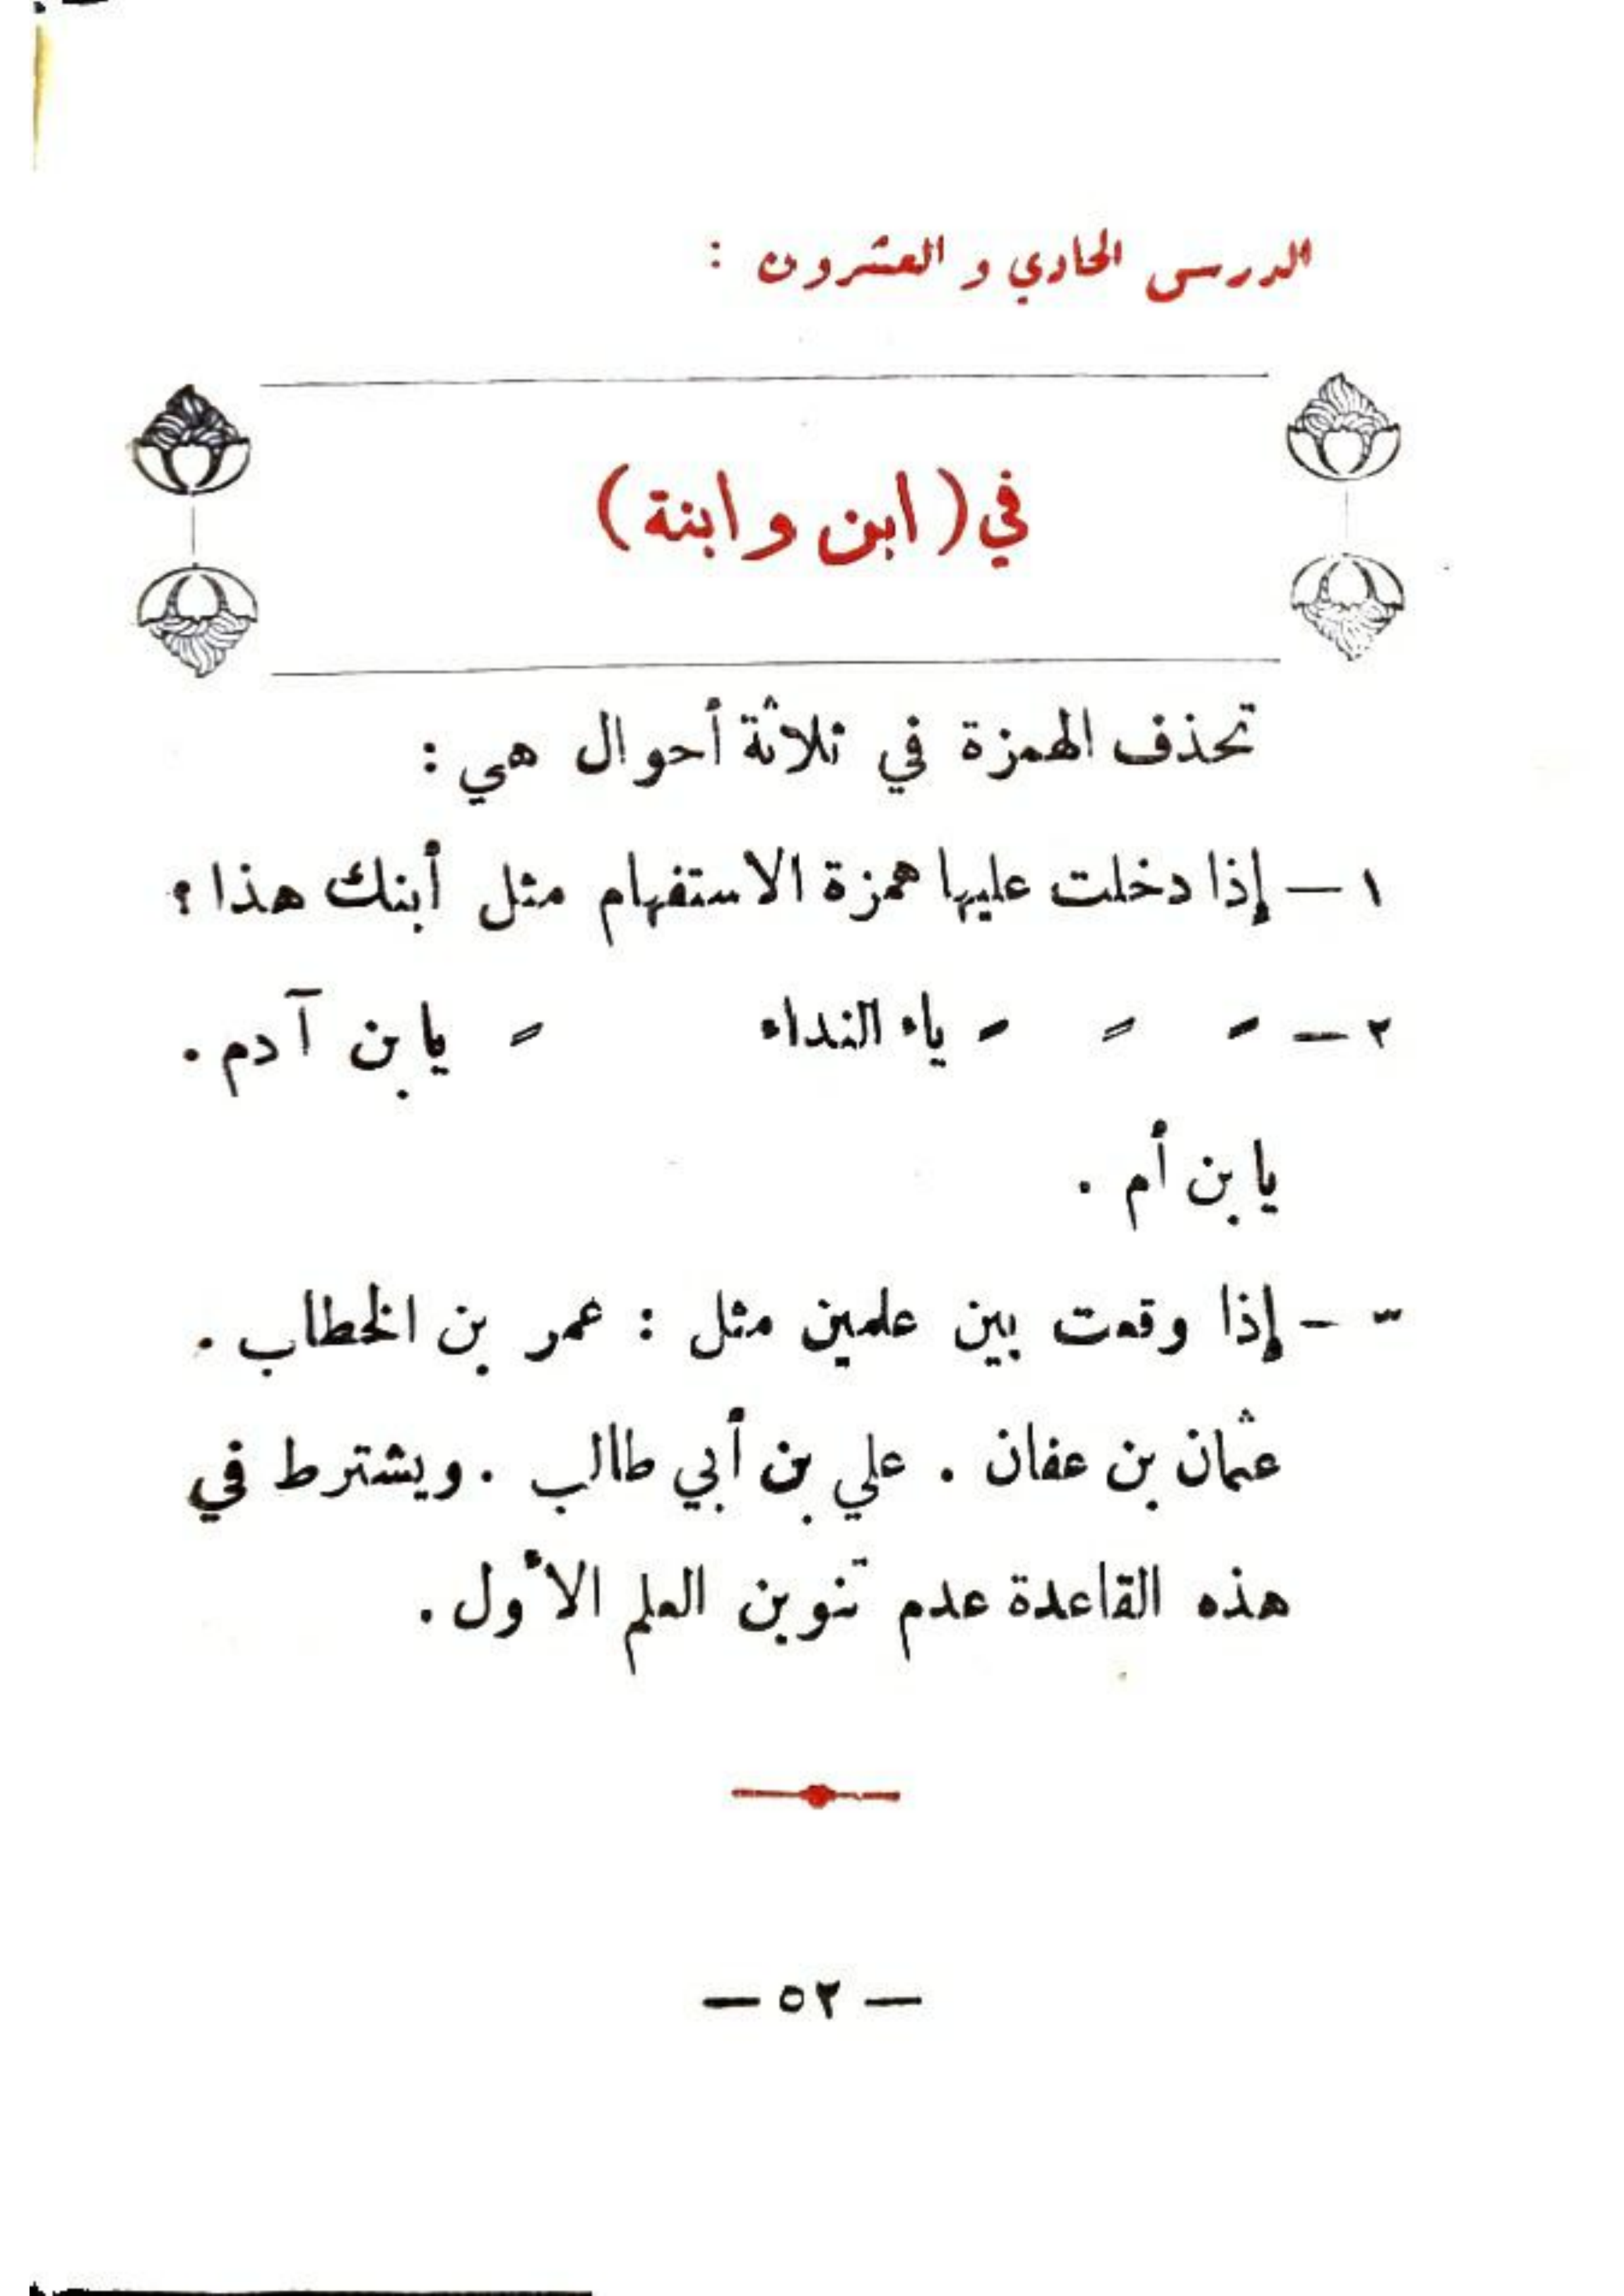 الدرس الحادي و العشرون :
في ( ابن و ابنة )
تحذف الهمزة في ثلاثة أحوال هي :
١ – إذا دخلت عليها همزة الاستفهام مثل أبنك هذا ؟
٢ – " " " ياء النداء " يا بن آدم .
يا بن أم .
٣ – إذا وقعت بين علمين مثل : عمر بن الخطاب .
عثمان بن عفان . علي بن أبي طالب . ويشترط في
هذه القاعدة عدم تنوين العلم الأول .
— ٥٢ —